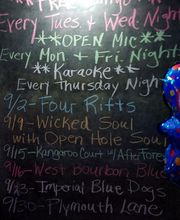 Every Tues. + Wed. Night
**OPEN Mic**
Every Mon. + Fri. Nights
**Karaoke**
Every Thursday Nigh
9/2-Four Rifts
9/9-Wicked Soul
with Open Hole Soul
9/15-Kangaroo Court w/ Afterforev
9/16-West bourbon Blue
9/23-Imperial Blue Dogs
9/30-Plymouth Lane